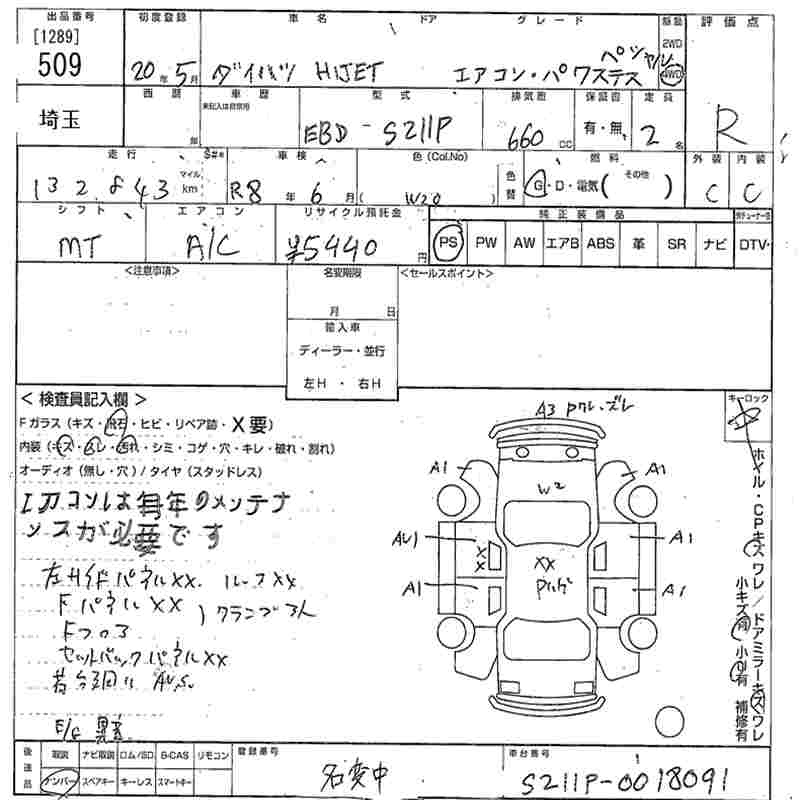 出品番号 初度登録 車名 ドア グレード 駆動 評価点
[1289]
509
20年 5月
ダイハツ HIJET
エアコン・パワステス
ペシャル
2WD
4WD
R
埼玉
西暦 車歴 型式 排気量 保証書 定員
未記入は自家用
年
EBD-S211P
660 cc
有・無
2名
走行 車検 色(Col.No) 色替 燃料 外装 内装
132,843 マイル km
R8年 6月
( W20 )
G・D・電気( その他 )
C C
シフト エアコン リサイクル預託金 純正装備品
MT A/C ¥5440円
PS PW AW エアB ABS 革 SR ナビ DTV
<注意事項> 名変期限 <セールスポイント>
月 日
輸入車
ディーラー・並行
左H・右H
<検査員記入欄>
Fガラス(キズ・飛石・ヒビ・リペア跡・X要)
内装(キズ・スレ・汚れ・シミ・コゲ・穴・キレ・破れ・割れ)
オーディオ(無し・穴)/タイヤ(スタッドレス)
エアコンは毎年のメンテナ
ンスが必要です
左サイドパネルXX. ルーフXX
FパネルXX
クランプ
Fフロア
セットバックパネルXX
E/G 異音
キーロック
A3 Pクレ・ズレ
A1 A1
W2
AU1 A1
XX XX
A1 A1
ホイル・CPキズワレ/ドアミラーキズワレ
小キズ有 小凹有 補修有
後送品 取説 ナビ取説 ロム/SD B-CAS リモコン 登録番号 車台番号
ナンバー スペアキー キーレス スマートキー
名変中
S211P-0018091